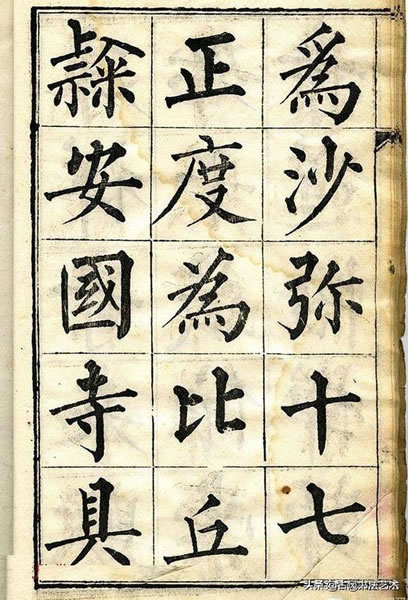 爲沙弥十七
正度為比丘
隸安國寺具
头条 书法艺术